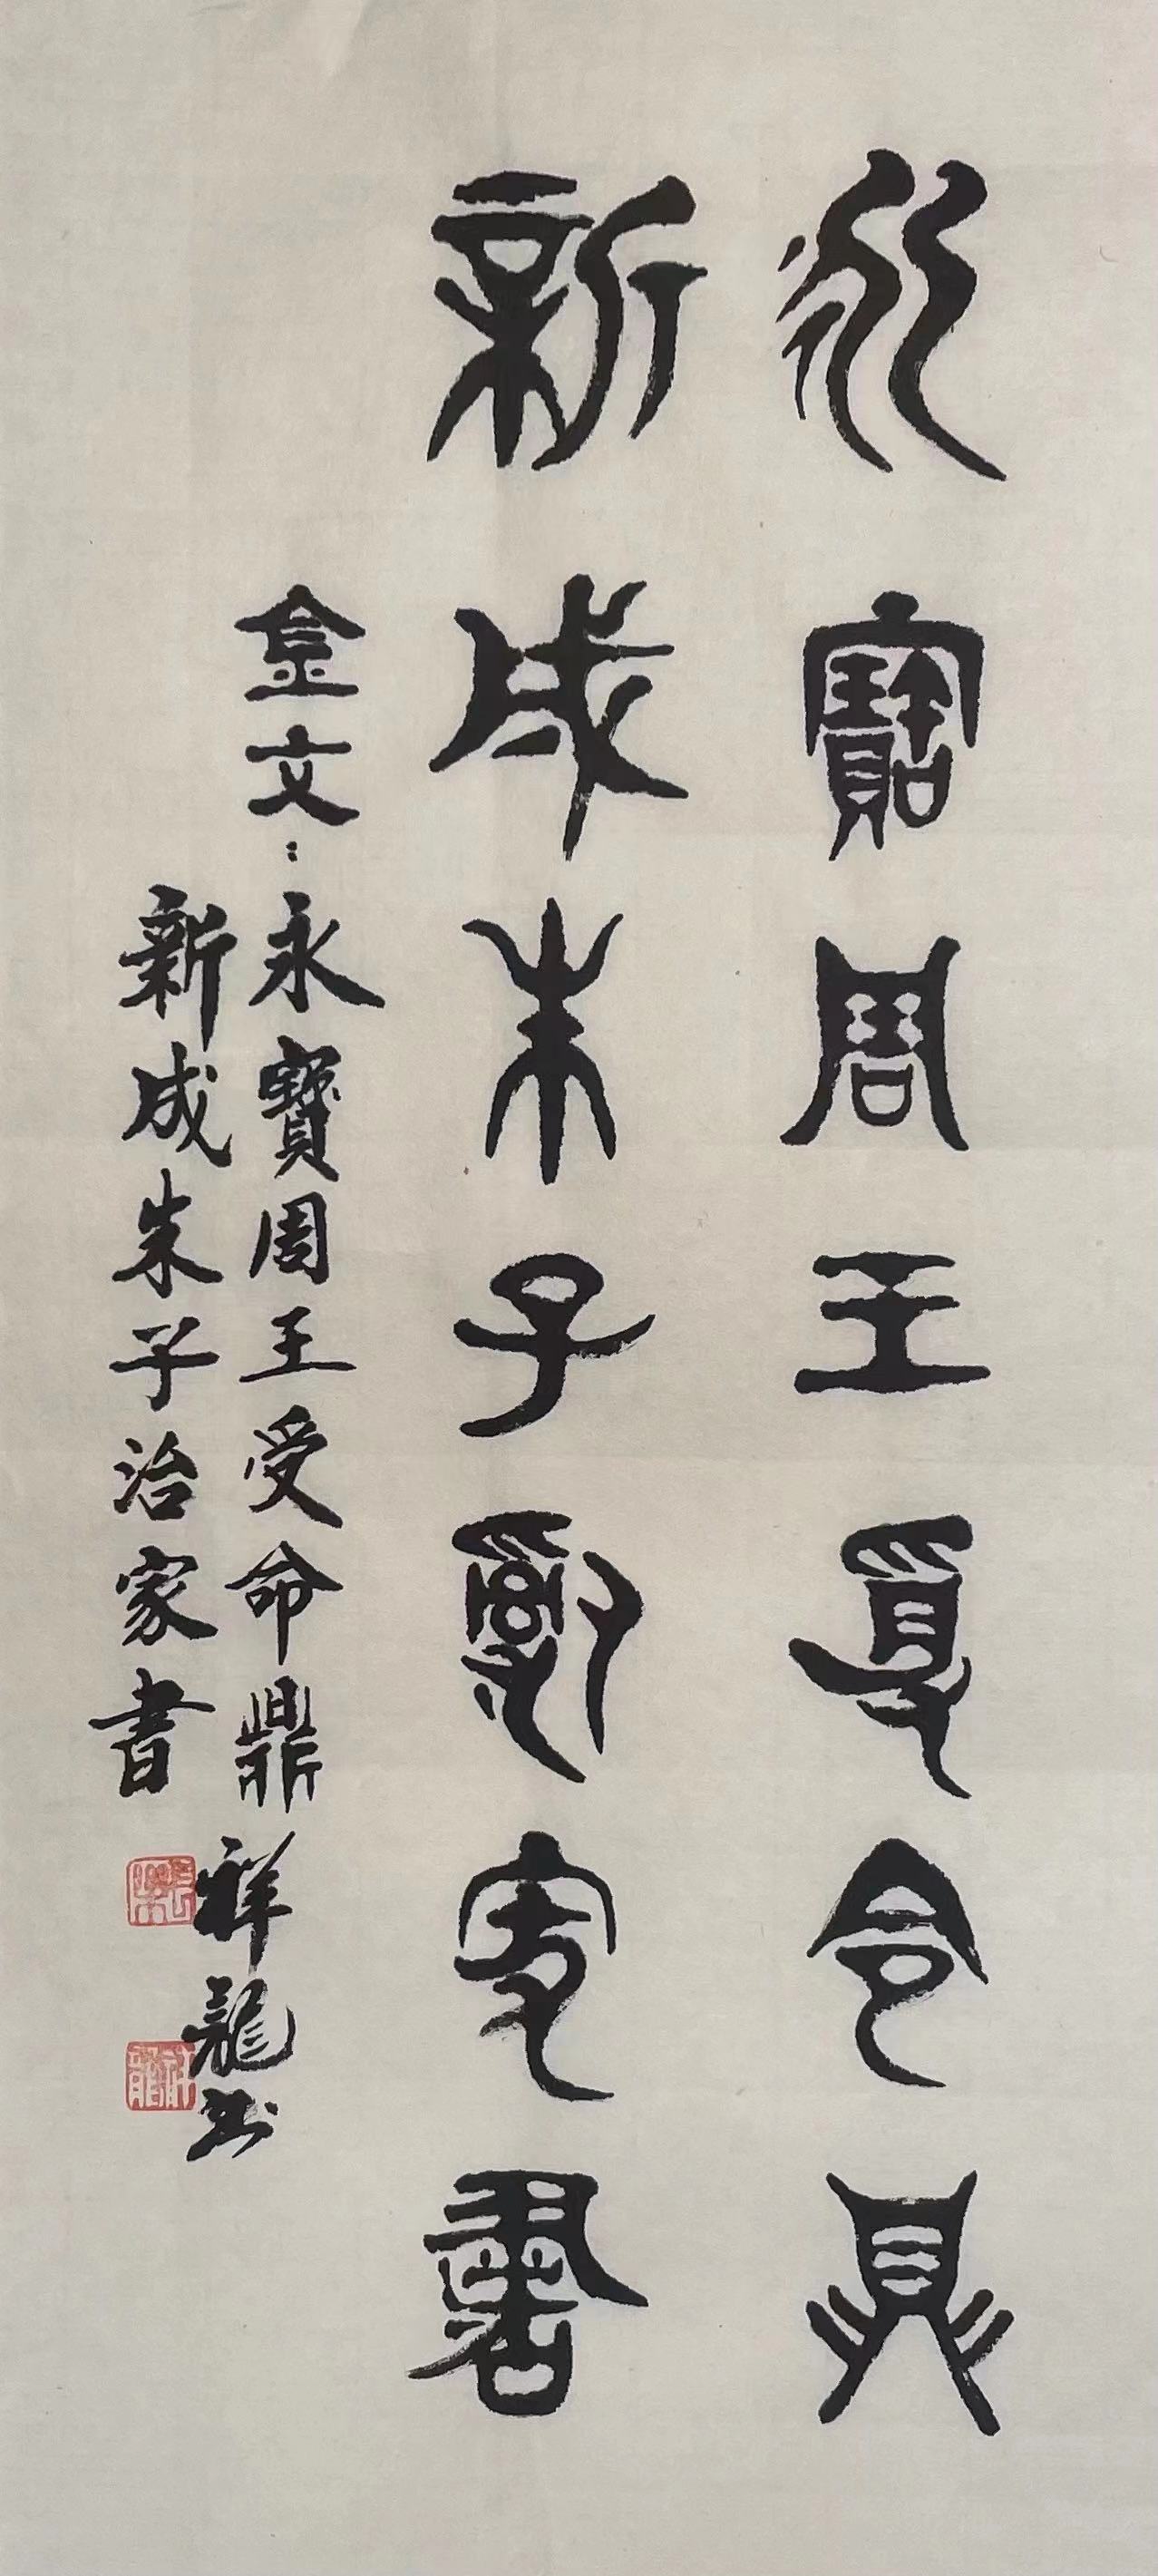 永寶周王受令鼎
新成朱子辭家書
金文：永寶周王受命鼎
新成朱子治家書
祥龍书
祥龍